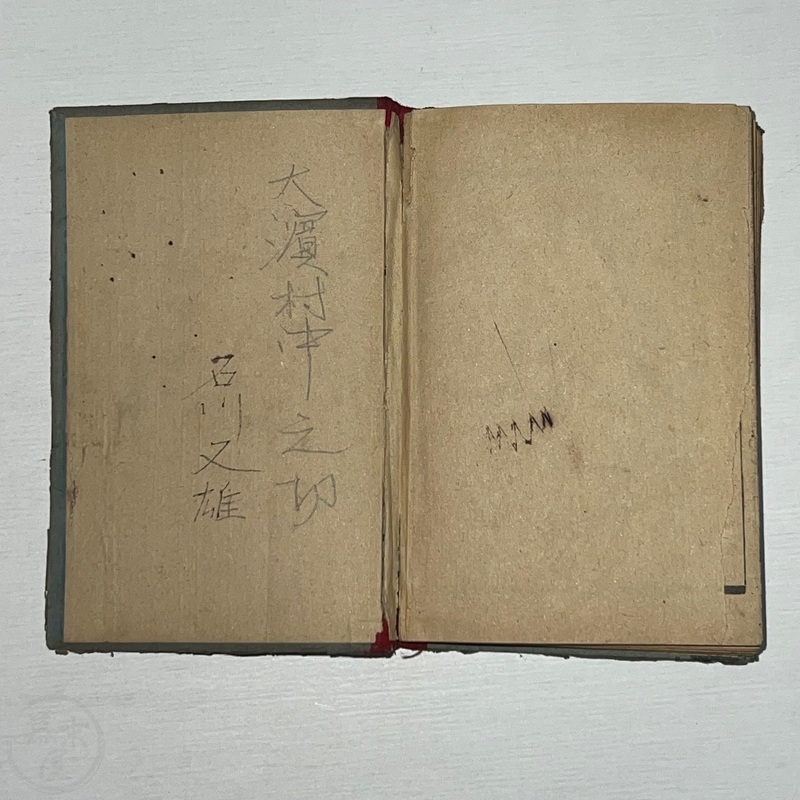 大濱村中之切
石川又雄